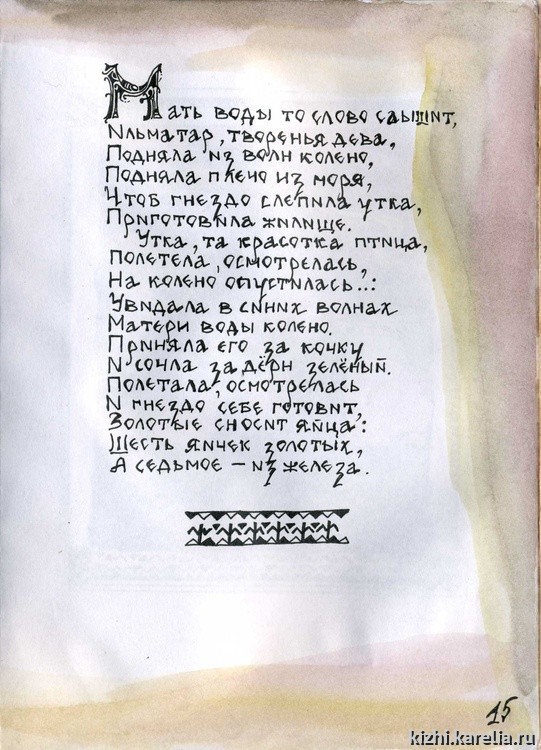 Мать воды то слово слышит,
Ильматар, творенья дева,
Подняла из волн колено,
Подняла плечо из моря,
Чтоб гнездо слепила утка,
Приготовила жилище.
Утка, та красотка птица,
Полетела, осмотрелась,
На колено опустилась..:
Увидала в синих волнах
Матери воды колено.
Приняла его за кочку
И сочла за дёрн зелёный.
Полетала, осмотрелась
И гнездо себе готовит,
Золотые сносит яйца:
Шесть яичек золотых,
А седьмое – из железа.
15
kizhi.karelia.ru